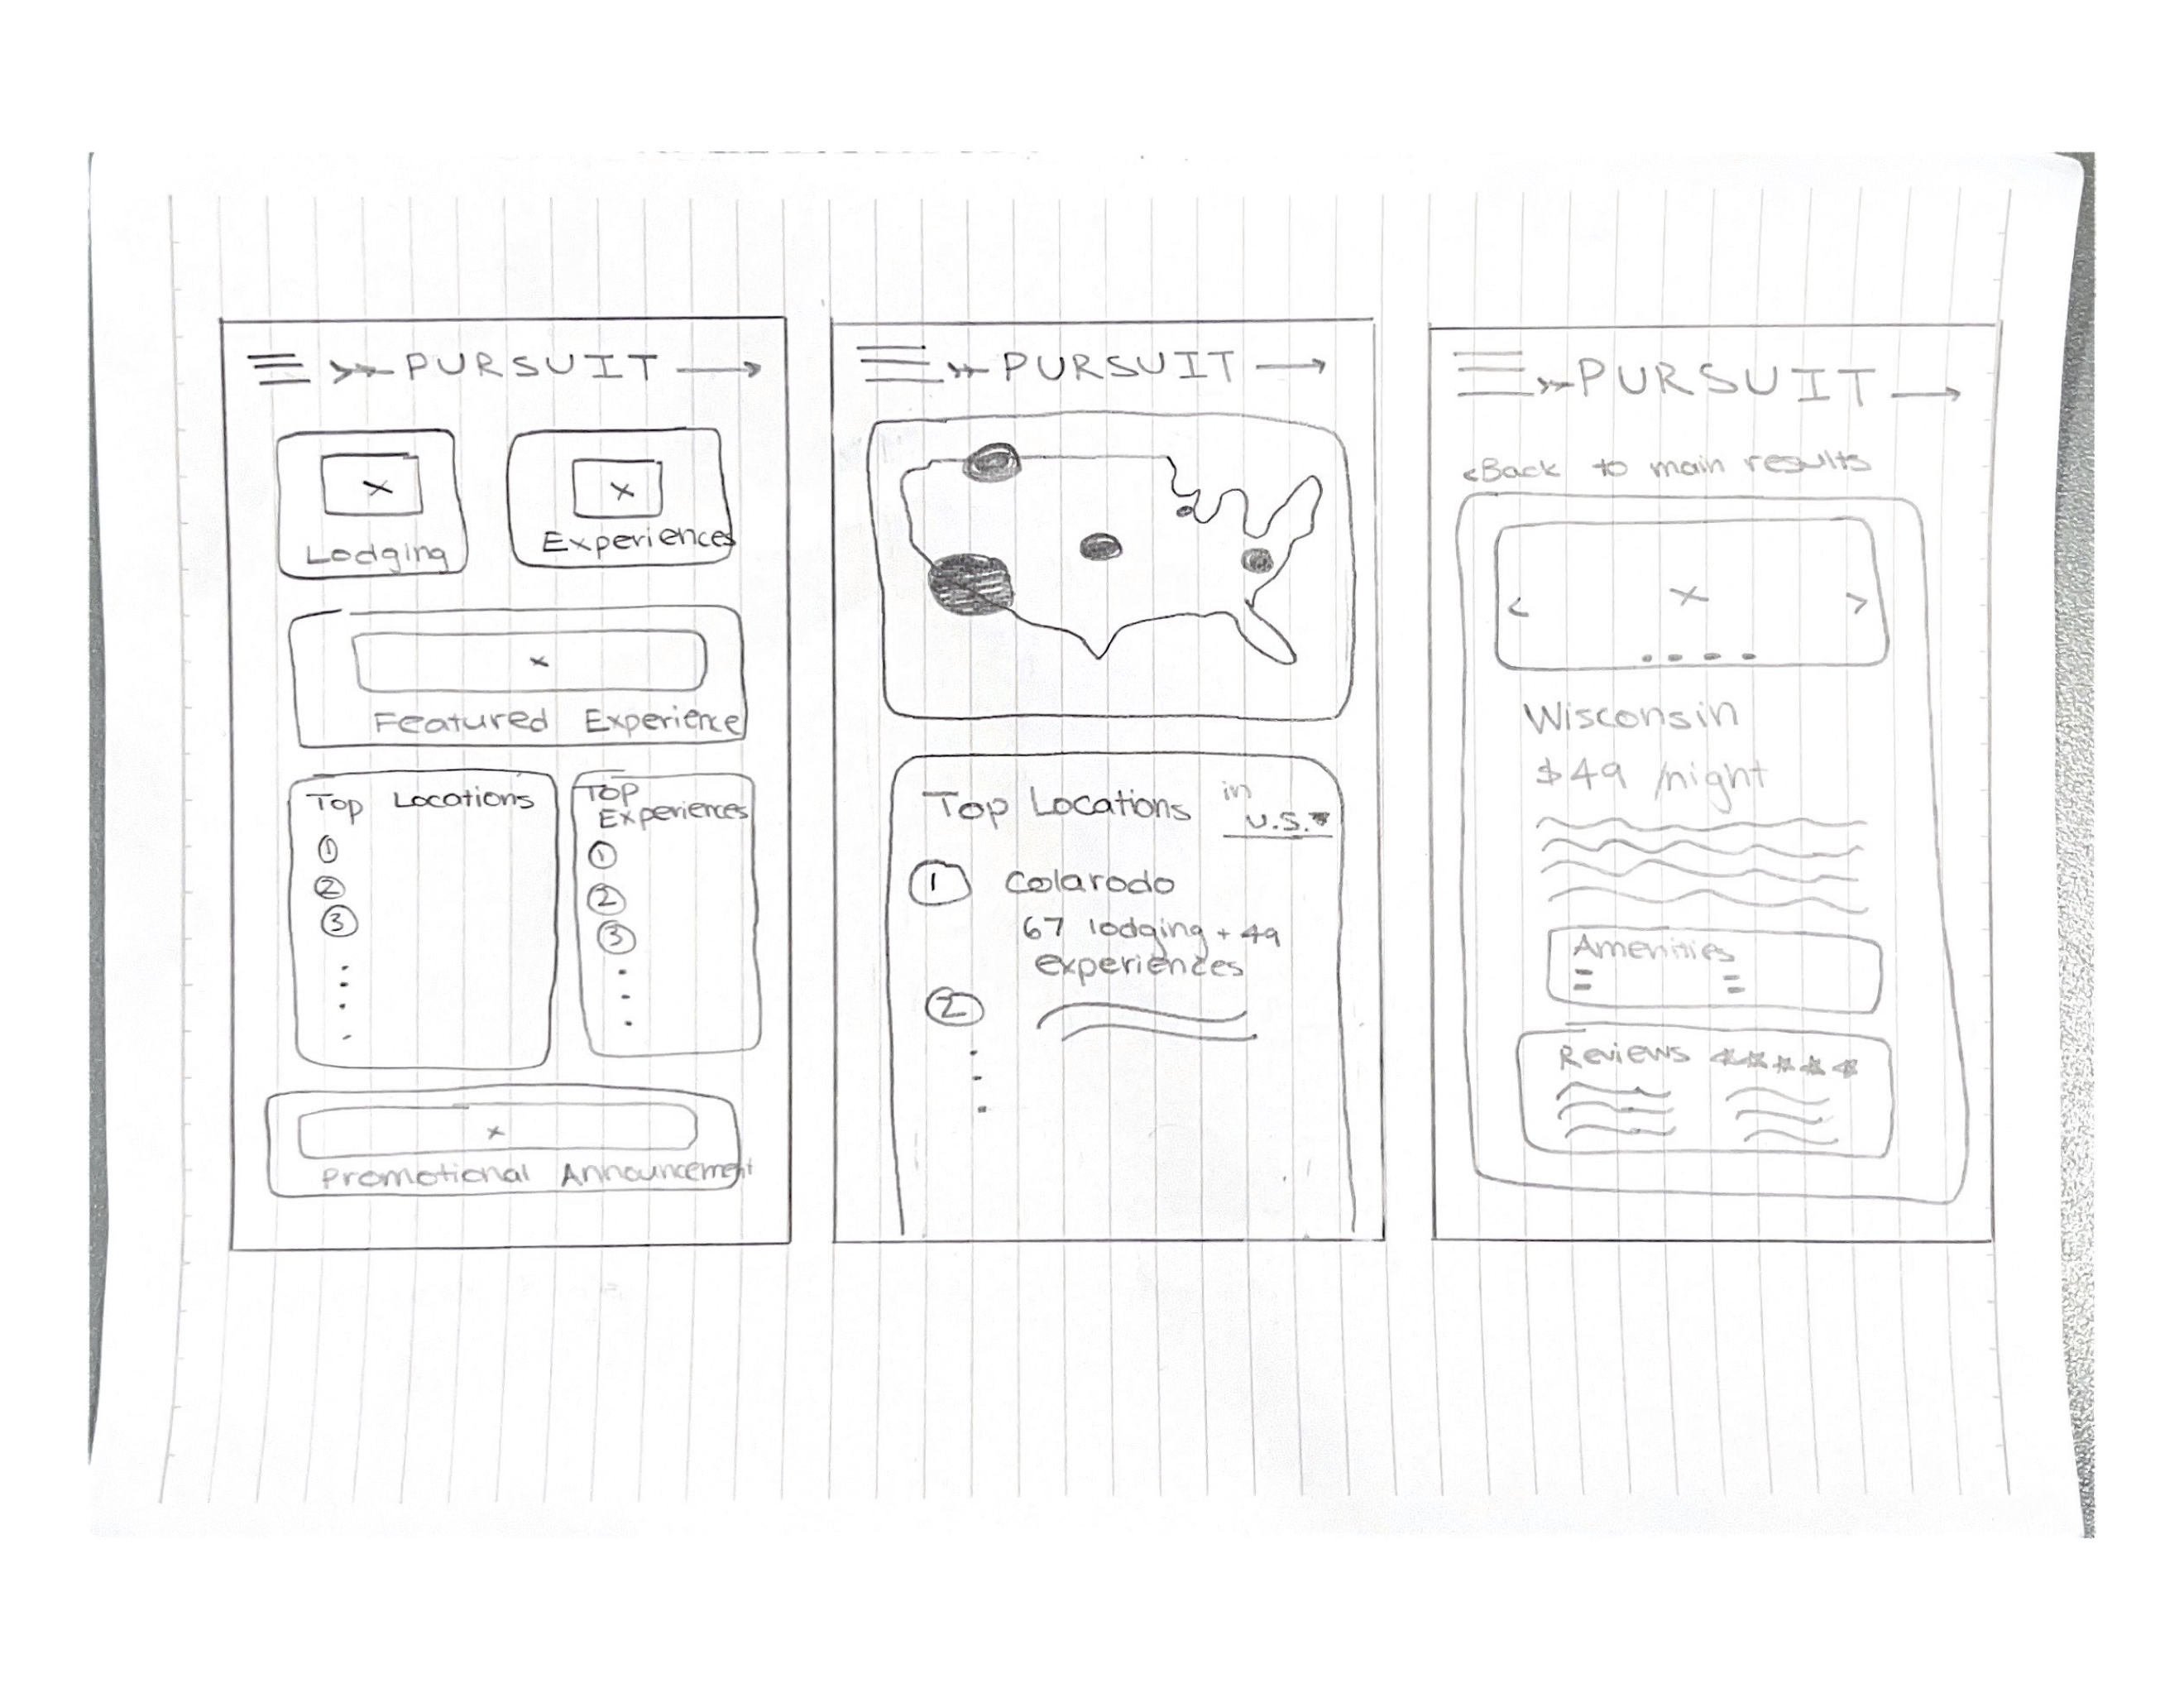 PURSUIT
Lodging
Experiences
Featured Experience
Top Locations
1
2
3
Top
Experiences
1
2
3
Promotional Announcement
PURSUIT
Top Locations in
U.S.
1 Colarodo
67 lodging + 49
experiences
2
PURSUIT
<Back to main results
< x >
Wisconsin
$49 /night
Amenities
Reviews